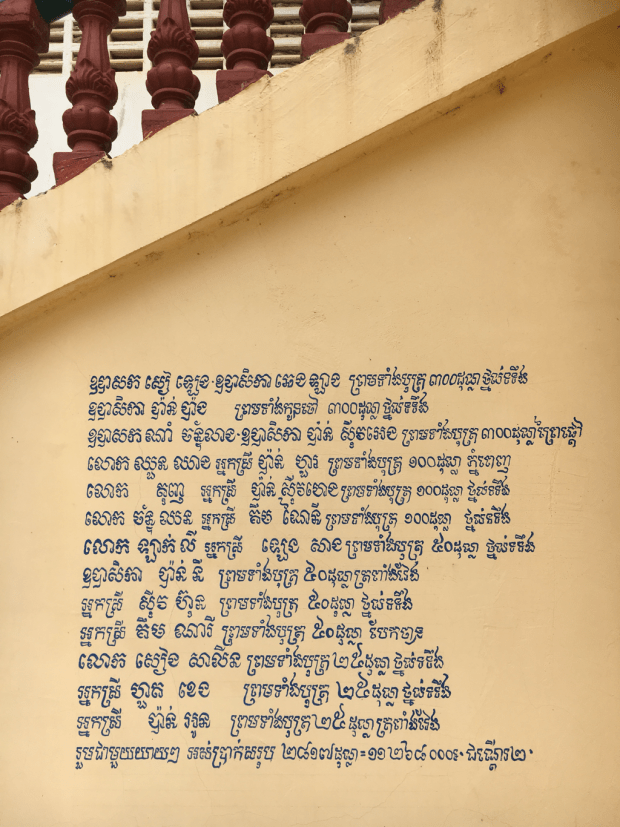 ឧបាសក ស្សៀ ឡេង·ឧបាសិកា អេង ឡាង ព្រមទាំងបុត្រ ៣០០ដុល្ល ថ្នល់ទទឹង
ឧបាសិកា ប៉ាន់ ប៉ាង ព្រមទាំងកូនចៅ ៣០០ដុល្ល ថ្នល់ទទឹង
ឧបាសក ណាំ ចន្ថុលាង·ឧបាសិកា ប៉ាន់ ស៊ីវអេង ព្រមទាំងបុត្រ ៣០០ដុល្ល ព្រៃផ្ដៅ
លោក ឈួន ឈាង អ្នកស្រី ប៉ាន់ ហួរ ព្រមទាំងបុត្រ ១០០ដុល្ល ភ្នំពេញ
លោក តុញ អ្នកស្រី ប៉ាន់ ស៊ីវហេង ព្រមទាំងបុត្រ ១០០ដុល្ល ថ្នល់ទទឹង
លោក ច័ន្ទ ឈន អ្នកស្រី គឹម ណៃនី ព្រមទាំងបុត្រ ១០០ដុល្ល ថ្នល់ទទឹង
លោក ឡាក់ លី អ្នកស្រី ឡេង សាង ព្រមទាំងបុត្រ ៥០ដុល្ល ថ្នល់ទទឹង
ឧបាសិកា ប៉ាន់ នី ព្រមទាំងបុត្រ ៥០ដុល្ល ត្រពាំងវែង
អ្នកស្រី ស៊ីវ ហ៊ុន ព្រមទាំងបុត្រ ៥០ដុល្ល ថ្នល់ទទឹង
អ្នកស្រី គឹម ណារី ព្រមទាំងបុត្រ ៥០ដុល្ល បែកចាន
លោក ស្សៀង សាលីន ព្រមទាំងបុត្រ ២៥ដុល្ល ថ្នល់ទទឹង
អ្នកស្រី ហួត ខេង ព្រមទាំងបុត្រ ២៥ដុល្ល ថ្នល់ទទឹង
អ្នកស្រី ប៉ាន់ អូន ព្រមទាំងបុត្រ ២៥ដុល្ល ត្រពាំងវែង
រួមជាមួយយាយៗ អស់ប្រាក់សរុប ២៨១៧ដុល្ល=១១២៦៨០០០៛· ជណ្ដើរ២·